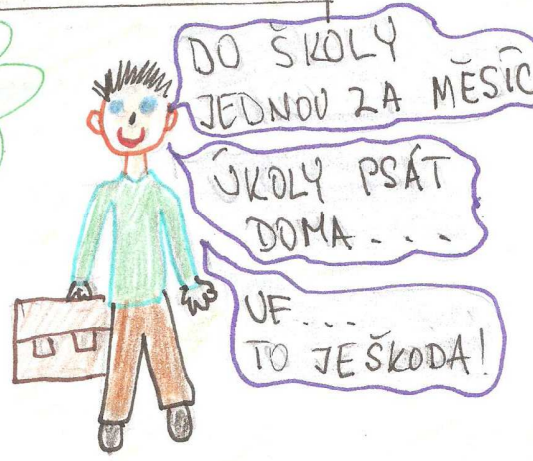 DO ŠKOLY
JEDNOU ZA MĚSÍC
ÚKOLY PSÁT
DOMA...
UF...
TO JE ŠKODA!